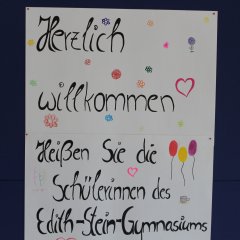 Herzlich
willkommen
Heißen Sie die
Schülerinnen des
Edith-Stein-Gymnasiums